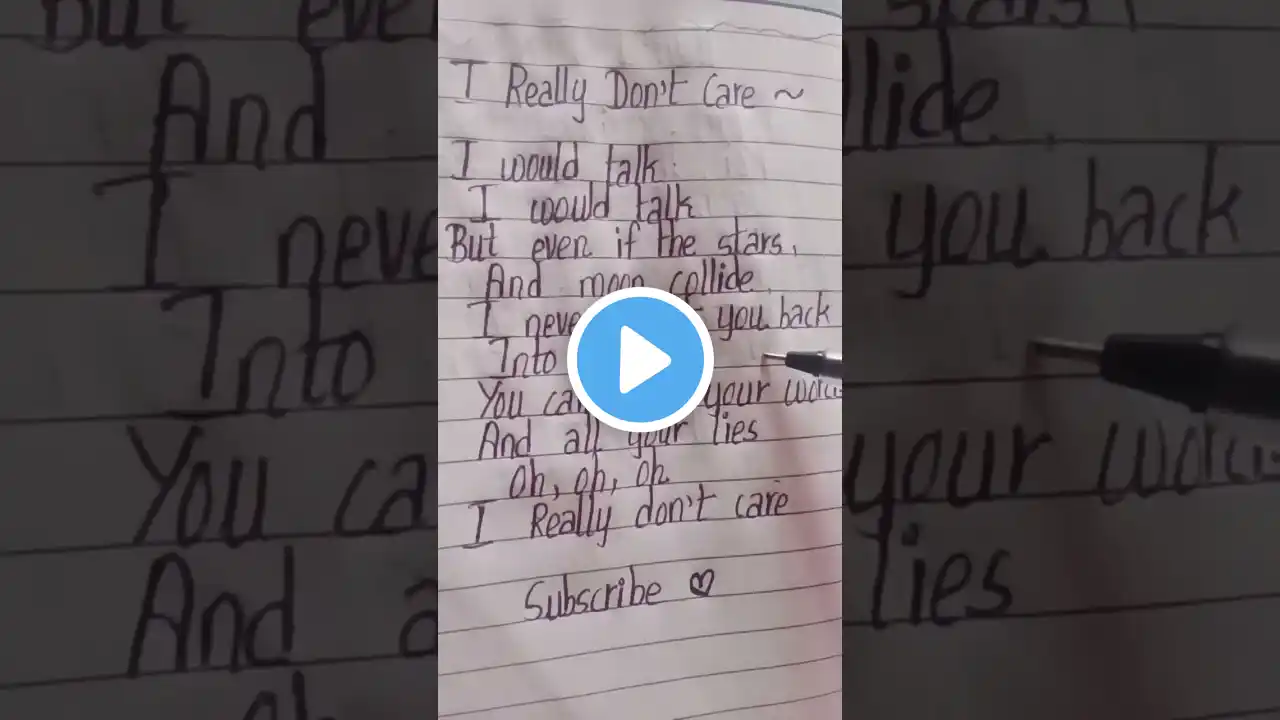 I Really Don't Care ~
I would talk
I would talk
But even if the stars,
And moon collide
I you back
Into
You your
And all your lies
Oh, oh, oh
I Really don't care
Subscribe ♡